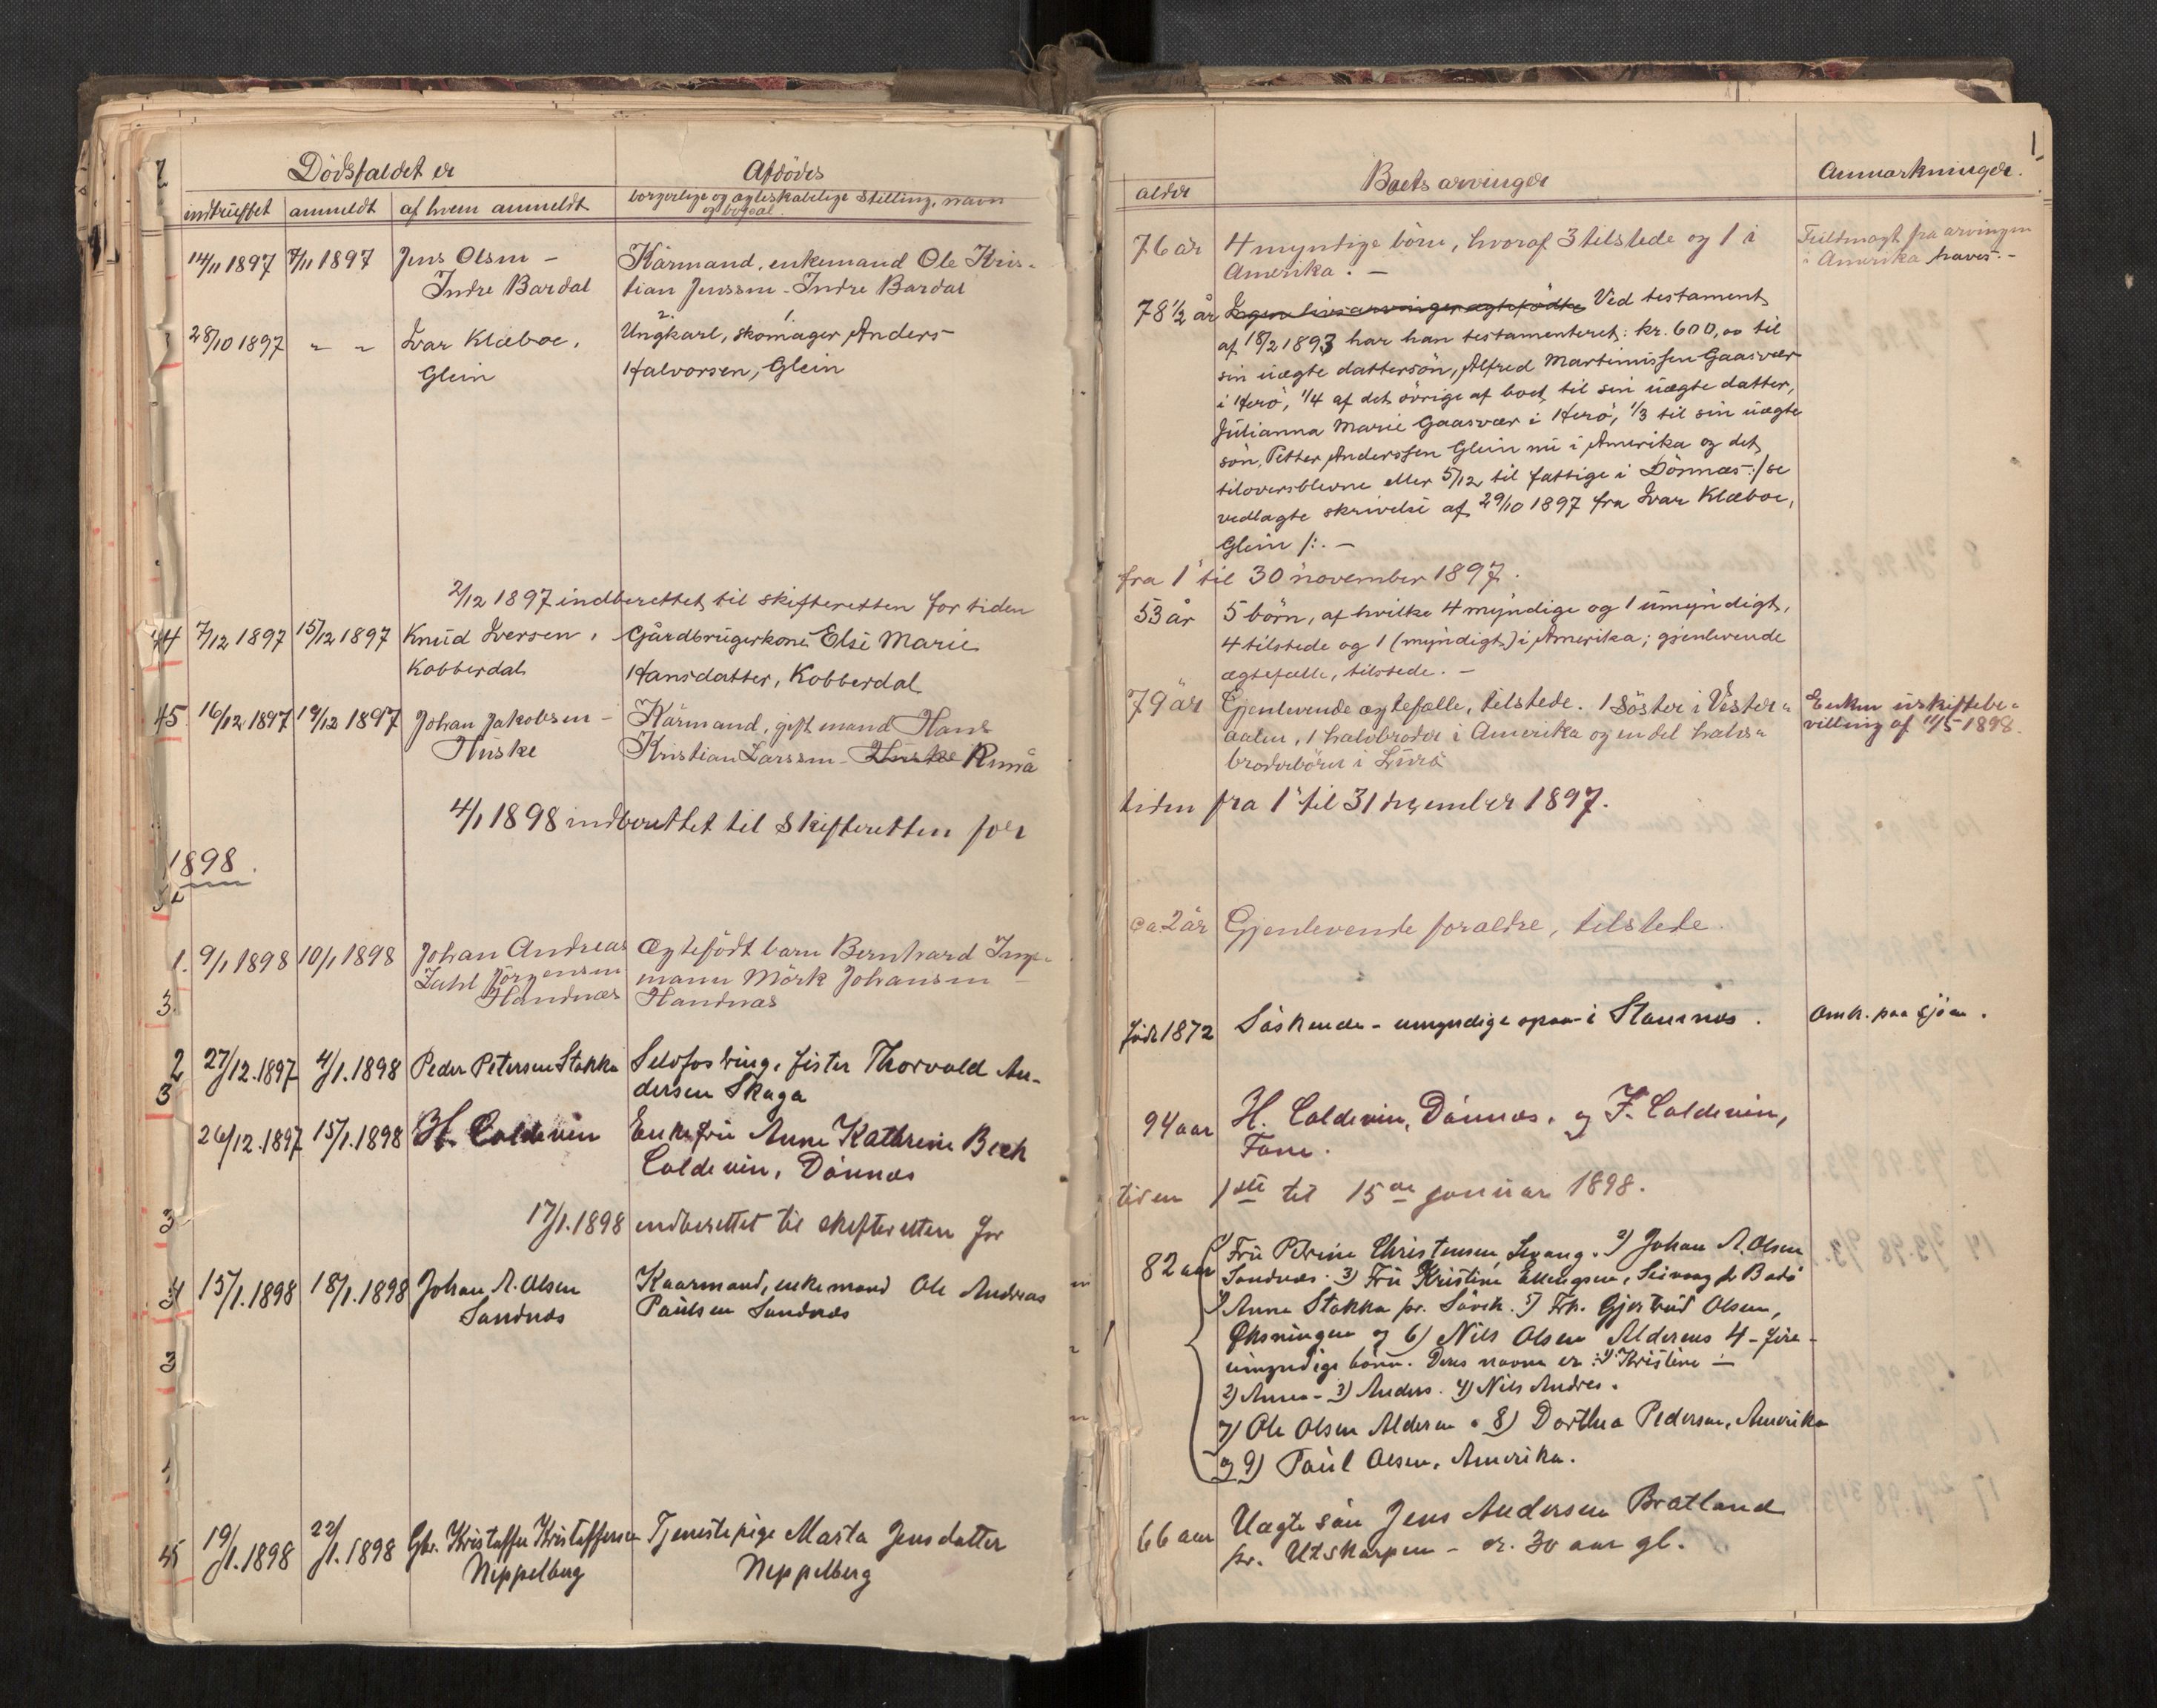 Dödsfaldet er
Afdödes
indtruffet anmeldt af hvem anmeldt
borgerlige og ægteskabelige stilling, navn
og bopæl.
14/11 1897 7/11 1897 Jens Olsen -
Kårmand, enkemand Ole Kris-
Indre Bardal
tian Jenssen - Indre Bardal
28/10 1897 " " Ivar Klæboe,
2. 1.
Ungkarl, skomager Anders
Glein
Halvorsen, Glein
2/12 1897 indberettet til skifteretten for tiden
44 7/12 1897 15/12 1897 Knud Iversen,
Gårdbrugerkone Else Marie
Kobberdal
Hansdatter, Kobberdal
45 16/12 1897 19/12 1897 Johan Jakobsen -
Kårmand, gift mand Hans
Huske
Kristian Larssen - Huske
4/1 1898 indberettet til skifteretten for
1898.
1. 9/1 1898 10/1 1898 Johan Andreas
Ægtefödt barn Bernhard Inge-
Zahl Jörgensen
mann Mörk Johansen -
Handnæs
Handnæs
2 27/12.1897 4/1.1898 Peder Petersen Stokka
Selvfostring, fisker Thorvald An-
dersen Skaga
3
26/12.1897 15/1.1898 H. Coldevin
Enkefru Anne Kathrine Bech
Coldevin, Dönnæs
17/1.1898 indberettet til skifteretten for
4 15/1.1898 18/1.1898 Johan A. Olsen
Kaarmand, enkemand Ole Andreas
Sandnæs
Paulsen Sandnæs
5 19/1.1898 22/1.1898 Gbr. Kristoffer Kristoffersen
Tjenestepige Marta Jensdatter
Neppelberg
Neppelberg
1
alder
Boets arvinger
Anmærkninger.
76 år 4 myndige börn, hvoraf 3 tilstede og 1 i
Amerika. -
Fuldmagt fra arvingen
i Amerika haves. -
78 1/2 år Ingen livsarvinger ægtefödte Ved testament
af 18/2 1893 har han testamenteret: kr. 600,00 til
sin uægte dattersön, Alfred Martinissen Gaasvær
i Herö, 1/4 af det övrige af boet til sin uægte datter,
Julianna Marie Gaasvær i Herö, 1/3 til sin uægte
sön, Petter Anderssen Glein nu i Amerika og det
tiloversblevne eller 5/12 til fattige i Dönnæs :/ se
vedlagte skrivelse af 29/10 1897 fra Ivar Klæboe,
Glein /:. -
fra 1 til 30 november 1897.
53 år 5 börn, af hvilke 4 myndige og 1 umyndigt,
4 tilstede og 1 (myndigt) i Amerika; gjenlevende
ægtefælle, tilstede. -
79 år Gjenlevende ægtefælle, tilstede. 1 söster i Vester-
aalen, 1 halvbroder i Amerika og en del halv-
broderbörn i Lurö
Enken uskiftebe-
villing af 11/5 1898.
tiden fra 1 til 31 december 1897.
ca 2 år Gjenlevende forældre, tilstede.
Födt 1872 Söskende - umyndige i Stamnæs.
Omk. paa sjöen.
94 aar H. Coldevin, Dönnæs, og F. Coldevin,
Fane.
tiden 1ste til 15de januar 1898.
82 aar 1) Fru Petrine Christensen, Levang. 2) Johan A. Olsen
Sandnæs. 3) Fru Kristine Ellingsen, Seivaag pr Bodö
4) Anna Stokka pr. Sövik. 5) Frk. Gjertrud Olsen,
Öksningen og 6) Nils Olsen Alderens 4 - fire -
umyndige börn. Deres navne er: 1) Kristine -
2) Anna - 3) Anders. 4) Nils Andres.
7) Ole Olsen Alderen. 8) Dorthea Pedersen, Amerika
og 9) Paul Olsen, Amerika.
66 aar Uægte sön Jens Andersen Bratland
pr. Utskarpen - er. 30 aar gl.